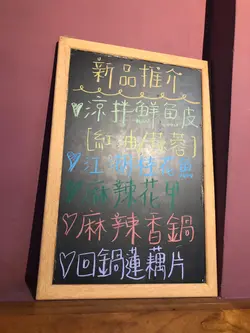 新品推介
♡涼拌鮮魚皮
♡江 桂花魚
♡麻辣花甲
♡麻辣香鍋
♡回鍋蓮藕片